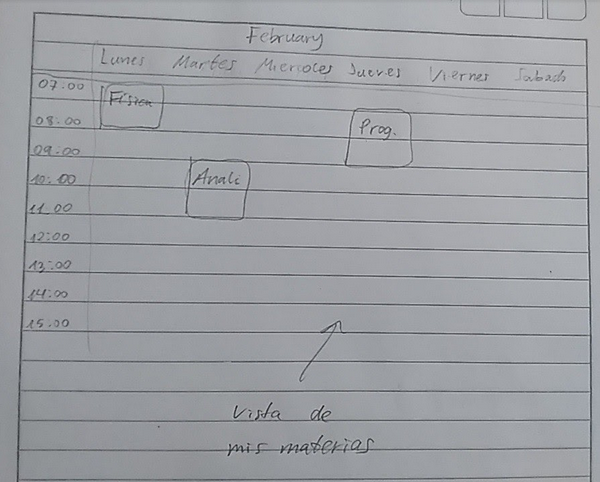 February
Lunes Martes Miercoles Jueves Viernes Sabado
07:00
Física
08:00
Prog.
09:00
10:00
Anali
11:00
12:00
13:00
14:00
15:00
vista de
mis materias